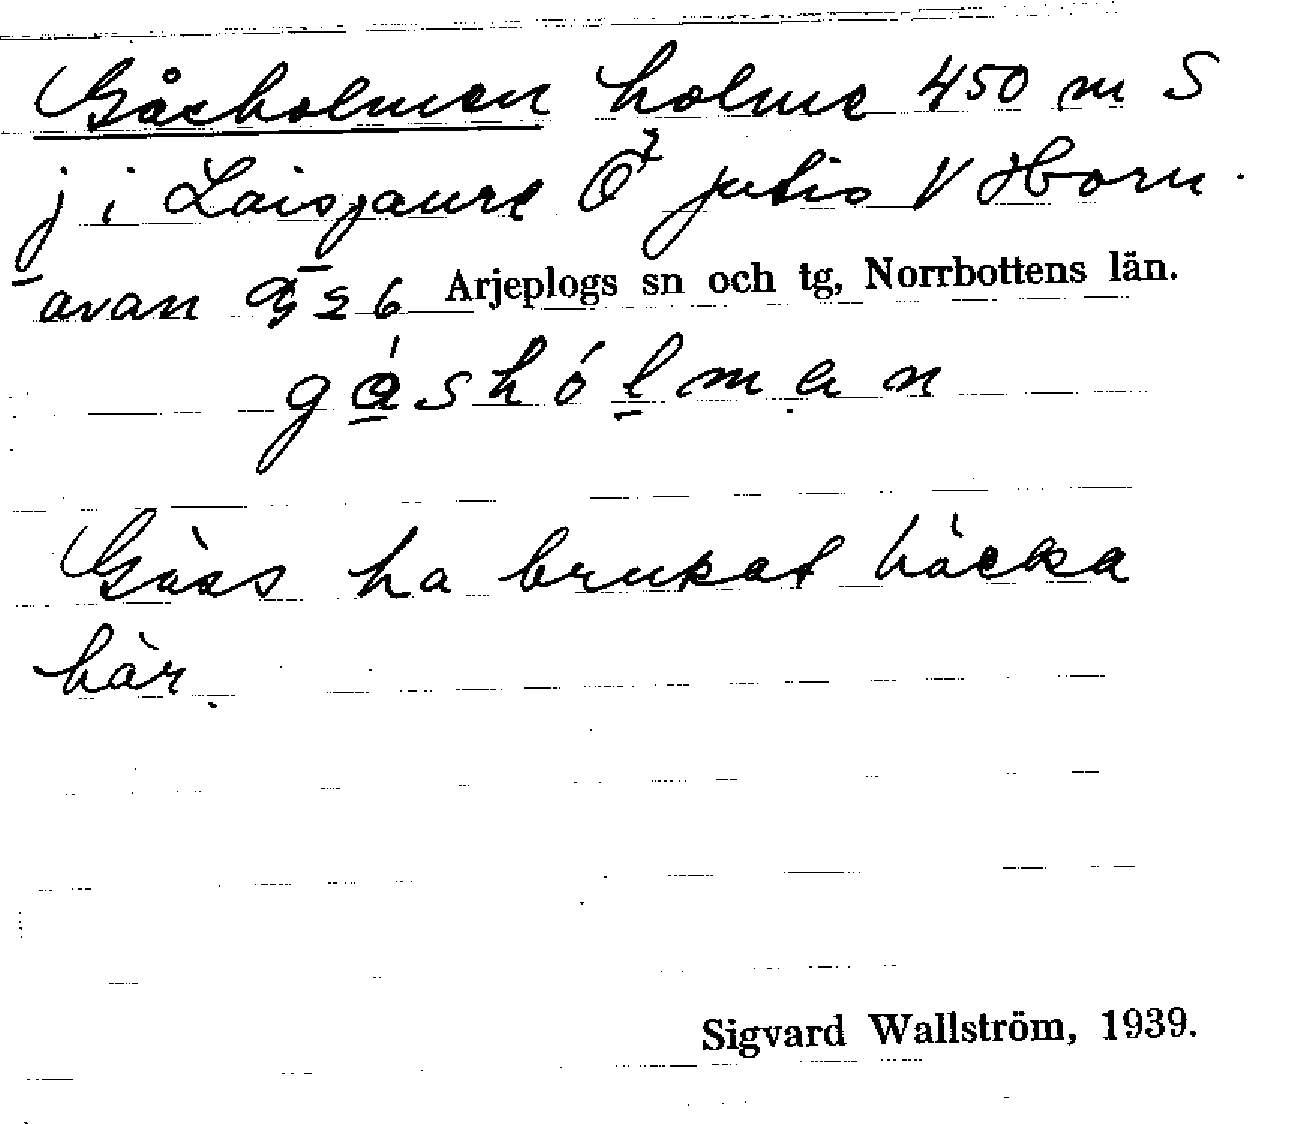 Gåsholmen holme 450 m S
j i Laisjaure Ö Jutis V Horn-
avan 9 s 6 Arjeplogs sn och tg, Norrbottens län.
gåshólman
Gäss ha brukat häcka
här.
Sigvard Wallström, 1939.